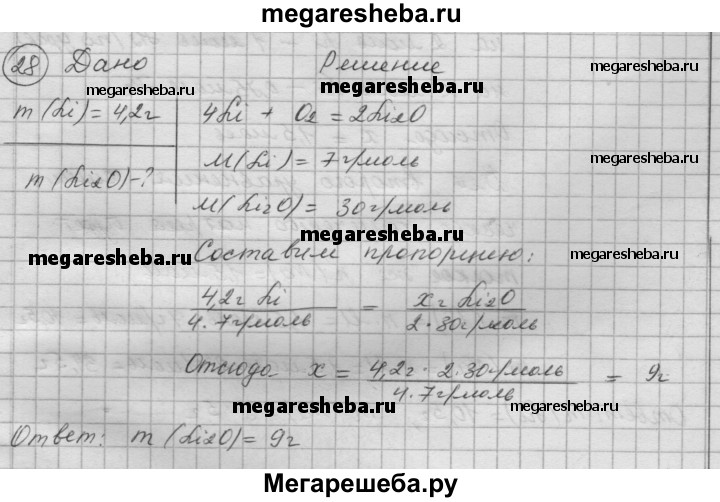 megaresheba.ru
28 Дано Решение
megaresheba.ru megaresheba.ru
m (Li) = 4,2г 4Li + O₂ = 2Li₂O
M(Li) = 7г/моль
megaresheba.ru
m (Li₂O) - ? M(Li₂O) = 30г/моль
megaresheba.ru
Составим пропорцию:
megaresheba.ru megaresheba.ru
4,2г Li / 4·7г/моль = xг Li₂O / 2·30г/моль
Отсюда x = 4,2г · 2·30г/моль / 4·7г/моль = 9г
megaresheba.ru megaresheba.ru
Ответ: m (Li₂O) = 9г
Мегарешеба.ру